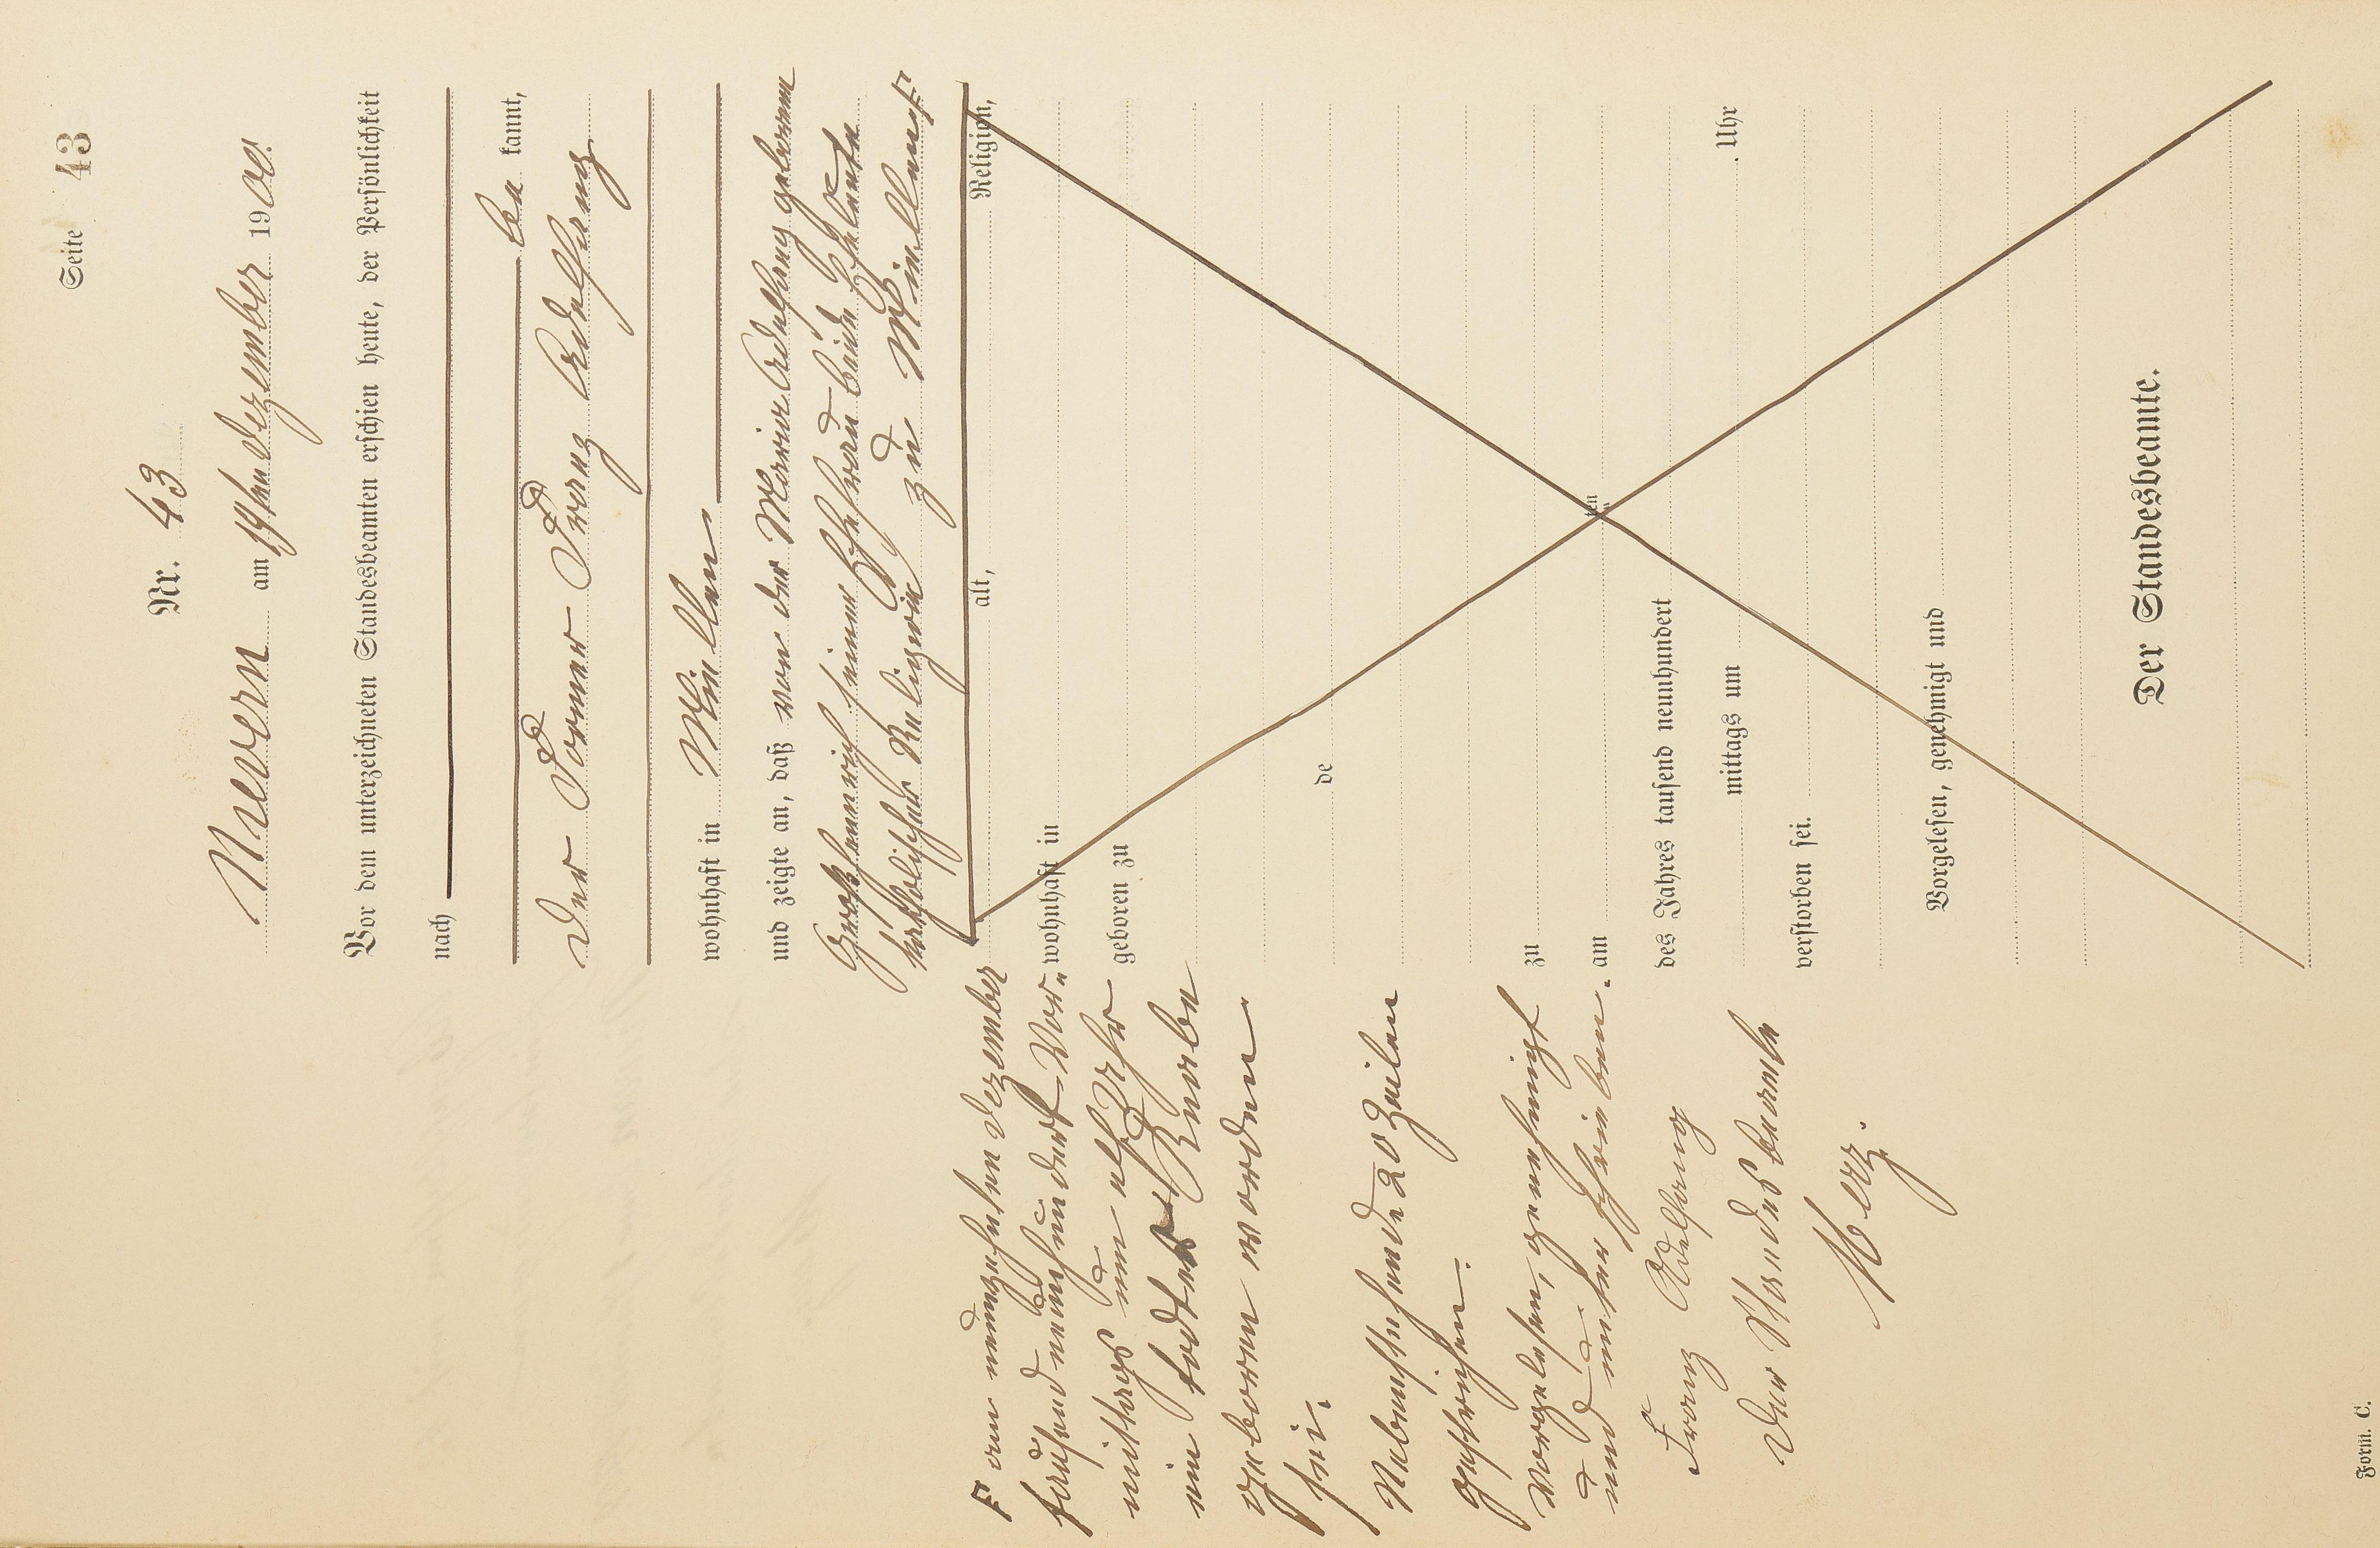 Seite 43
Nr. 43
Nievern am 19ten Dezember 1900.
Vor dem unterzeichneten Standesbeamten erschien heute, der Persönlichkeit
nach
be kannt,
der Former Franz Adelfang
wohnhaft in Miellen
und zeigte an, daß von der Maria Adelfang geborene
Großhennrich seiner Ehefrau beide Eheleute
katholischer Religion zu Miellen F
alt, Religion,
wohnhaft in
geboren zu
de
zu
am ten
des Jahres tausend neunhundert
mittags um Uhr
verstorben sei.
Vorgelesen, genehmigt und
Der Standesbeamte.
F am neunzehnten Dezember
tausend neunhundert Vor-
mittags um elf Uhr
ein todter Knabe
geboren worden
sei.
Nebenstehende 20 Zeilen
gestrichen.
Vorgelesen, genehmigt
und unterschrieben.
Franz Adelfang
Der Standesbeamte
Merz.
Form. C.